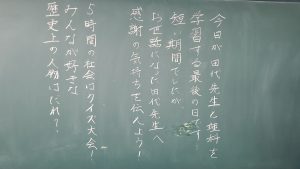 今日が田代先生と理科を
学習する最後の日です
短い期間でしたが、
お世話になった田代先生へ
感謝の気持ちを伝えよう！
5時間の社会はクイズ大会！
みんなが好きな
歴史上の人物はだれ？